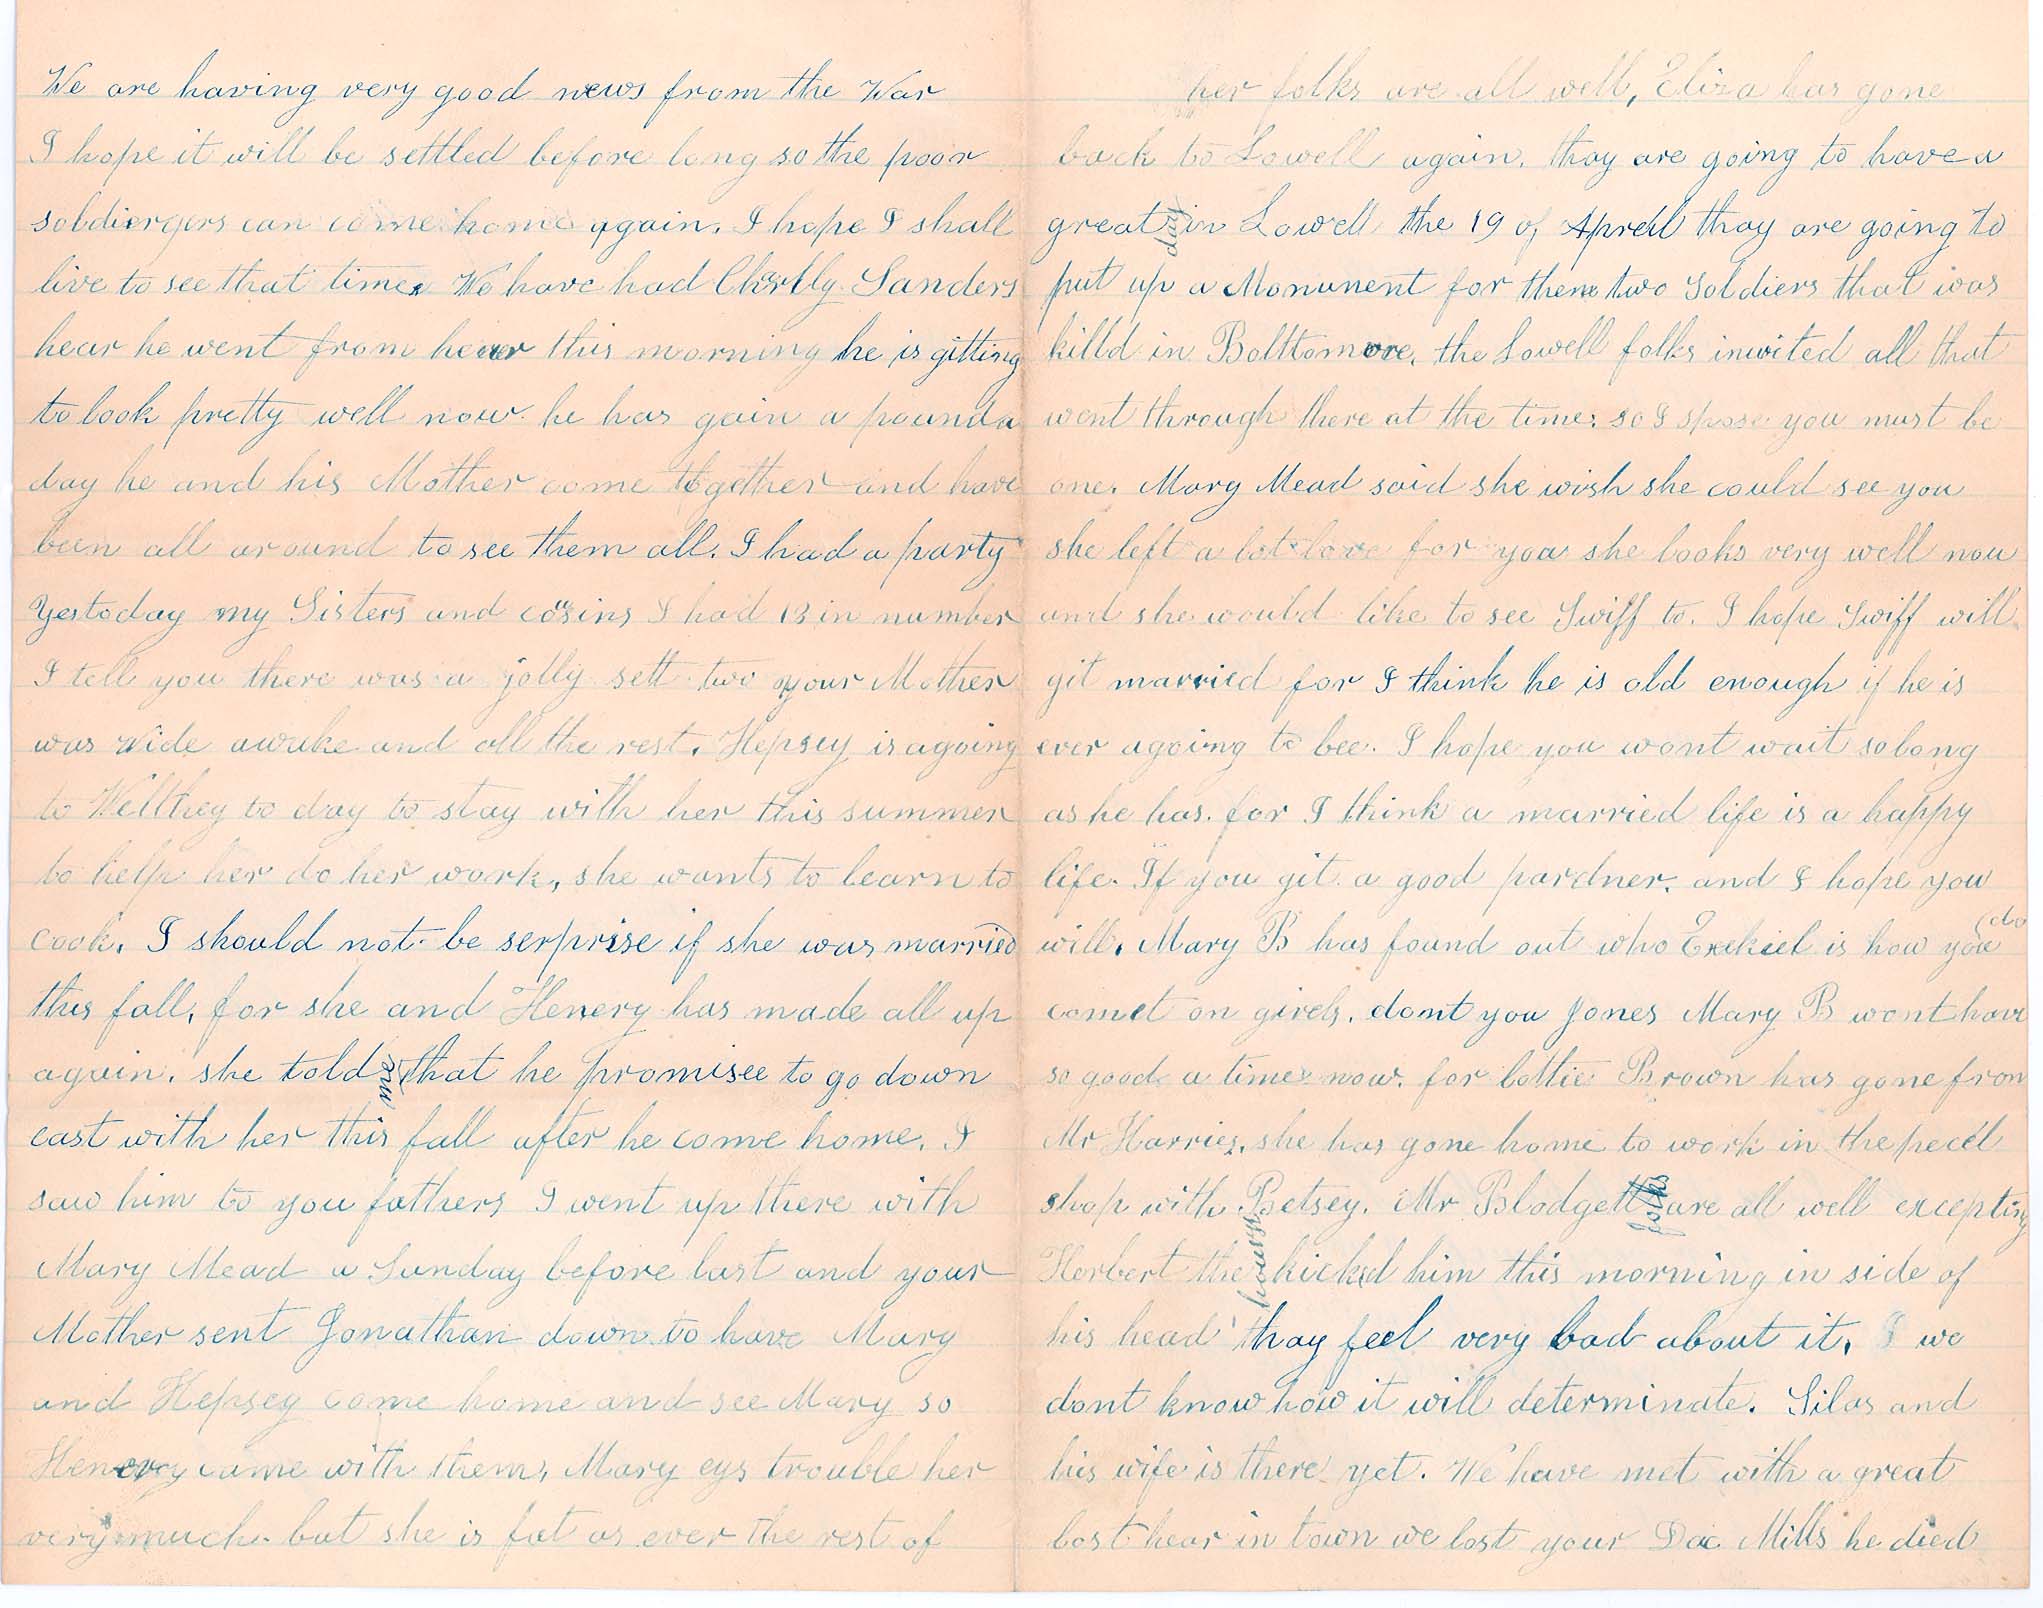 We are having very good news from the War
I hope it will be settled before long so the poor
soldiergers can come home again. I hope I shall
live to see that time. We have had Charlly Sanders
hear he went from hear this morning he is gitting
to look pretty well now. he has gain a pound a
day he and his Mother come together and have
been all around to see them all. I had a party
Yestoday my Sisters and cosins I had 13 in number
I tell you there was a jolly sett two your Mother
was wide awake and all the rest. Hepsey is agoing
to Wellthey to day to stay with her this summer
to help her do her work, she wants to learn to
cook. I should not be serprise if she was married
this fall, for she and Henery has made all up
again. she told me that he promisee to go down
east with her this fall after he come home. I
saw him to you fathers I went up there with
Mary Mead a Sunday before last and your
Mother sent Jonathan down to have Mary
and Hepsey come home and see Mary so
Henery came with them, Mary eys trouble her
very much. but she is fat as ever the rest of
her folks are all well, Eliza has gone
back to Lowell again. thay are going to have a
great day in Lowell the 19 of Aprell thay are going to
put up a Monument for them two Soldiers that was
killd in Balttomore, the Lowell folks invited all that
went through there at the time: so I spose you must be
one. Mary Mead said she wish she could see you
she left a lot love for you she looks very well now
and she would like to see Swiff to. I hope Swiff will
git married for I think he is old enough if he is
ever agoing to bee. I hope you wont wait so long
as he has. for I think a married life is a happy
life. If you git a good pardner. and I hope you
will. Mary B has found out who Ezekiel is how you do
comet on girels. dont you Jones Mary B wont have
so good a time now. for Lottie Brown has gone from
Mr Harries, she has gone home to work in the
shop with Betsey. Mr Blodgett folks are all well excepting
Herbert the hourse kicked him this morning in side of
his head thay feel very bad about it. I we
dont know how it will determinate. Silas and
his wife is there yet. We have met with a great
lost hear in town we lost your Doc Mills he died